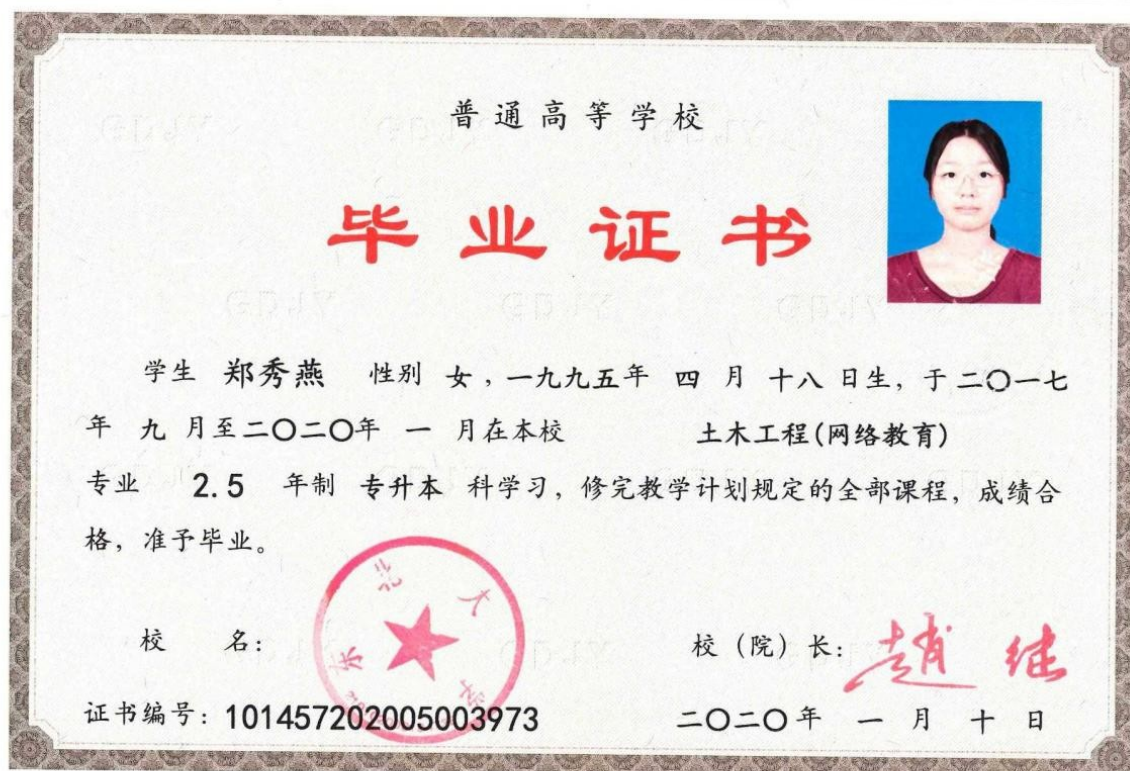 普通高等学校
毕业证书
学生 郑秀燕 性别 女，一九九五年 四 月 十八 日生，于二〇一七
年 九 月至二〇二〇年 一 月在本校 土木工程(网络教育)
专业 2.5 年制 专升本 科学习，修完教学计划规定的全部课程，成绩合
格，准予毕业。
东北大学
校 名：
校（院）长：赵继
证书编号：101457202005003973
二〇二〇年 一 月 十 日